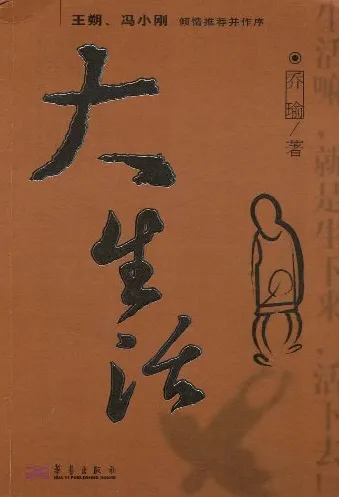 王朔、冯小刚 倾情推荐并作序
乔瑜/著
大生活
生活嘛,就是生下来,活下去!
华艺出版社
HUA YI PUBLISHING HOUSE